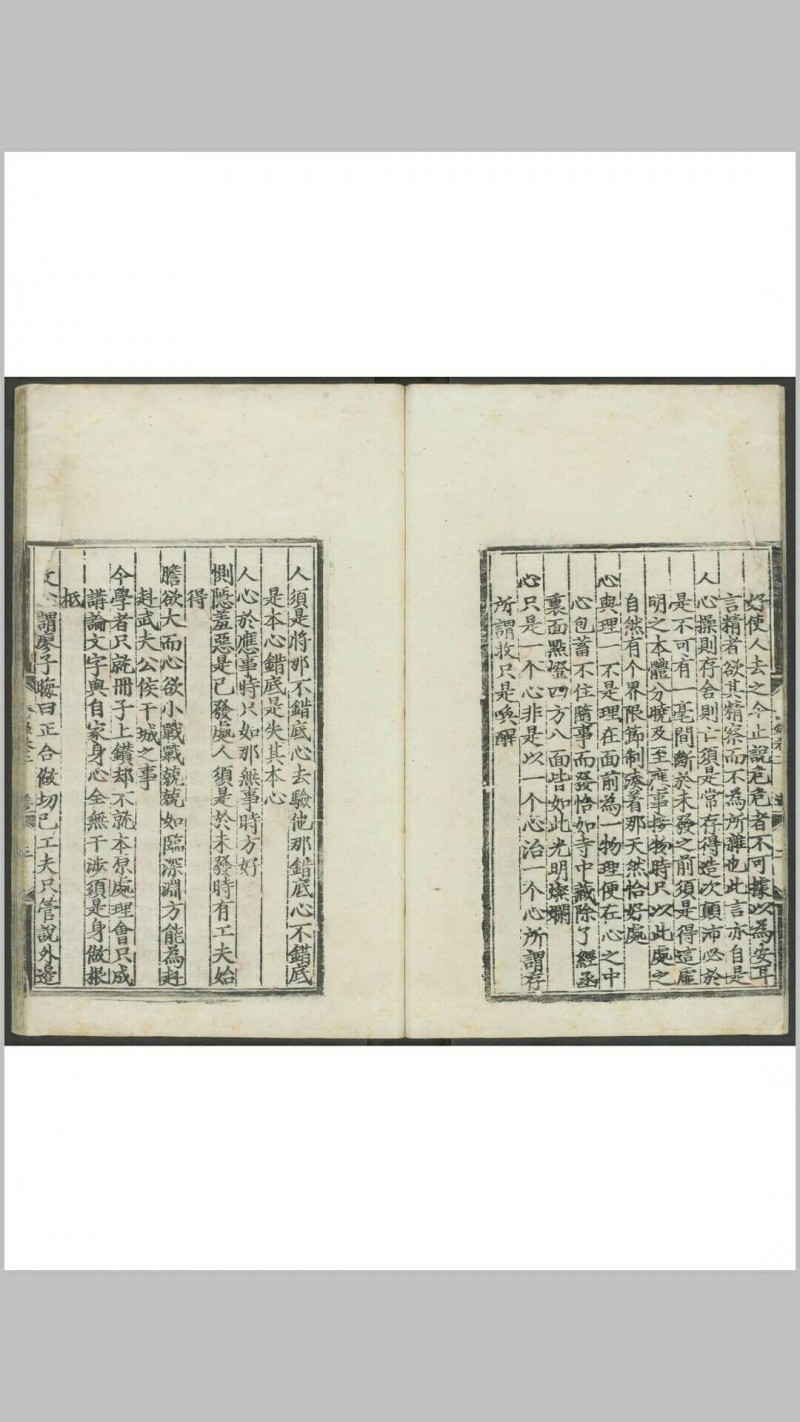 好使人去之今止說危危者不可據以為安耳
言精者欲其精察而不為所雜也此言亦自是
人心操則存舍則亡須是常存得造次顛沛必於
是不可有一毫間斷於未發之前須是得這虛
明之本體分曉及至應事接物時只以此處之
自然有个界限節制湊着那天然恰好處
心與理一不是理在面前為一物理便在心之中
心包蓄不住隨事而發恰如寺中藏除了經函
裏面點燈四方八面皆如此光明燦爛
心只是一个心非是以一个心治一个心所謂存
所謂收只是喚醒
人須是將那不錯底心去驗他那錯底心不錯底
是本心錯底是失其本心
人心於應事時只如那無事時方好
惻隱羞惡是已發處人須是於未發時有工夫始
得
膽欲大而心欲小戰戰兢兢如臨深淵方能為赳
赳武夫公侯干城之事
今學者只就冊子上鑽却不就本原處理會只成
講論文字與自家身心全無干涉須是身做根
柢
文 謂廖子晦曰正合做切己工夫只管說外邊